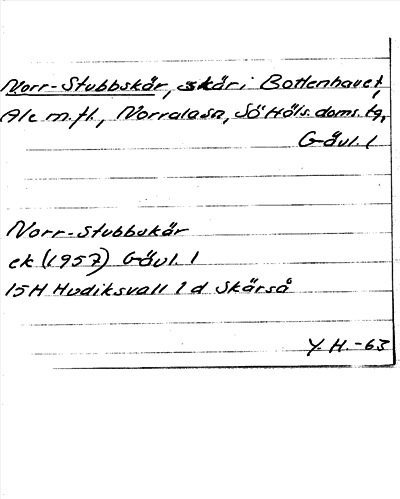 Norr-Stubbskär, skär i Bottenhavet,
Ale m.fl., Norrala sn, Sö Häls. doms. tg,
Gävl. l
Norr-Stubbskär
ek (1957) Gävl. l
15H Hudiksvall 1 d Skärså
Y. H. -63